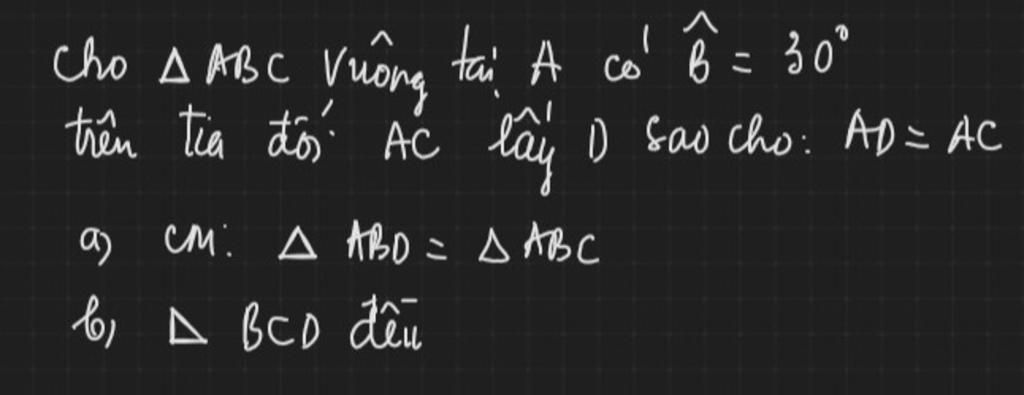 Cho Δ ABC vuông tại A có B̂ = 30°
trên tia đối AC lấy D sao cho: AD = AC
a) CM: Δ ABD = Δ ABC
b) Δ BCD đều